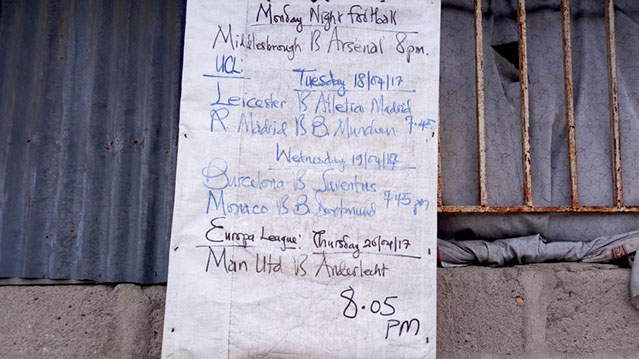 Monday Night football
Middlesbrough B Arsenal 8pm.
UCL:
Tuesday 18/04/17
Leicester B Atletico Madrid
R Madrid B B Munchen 7.45
Wednesday 19/04/17
Barcelona B Juventus
Monaco B B Dortmund 7.45 pm
Europa League: Thursday 20/04/17
Man Utd B Anderlecht
8.05
PM